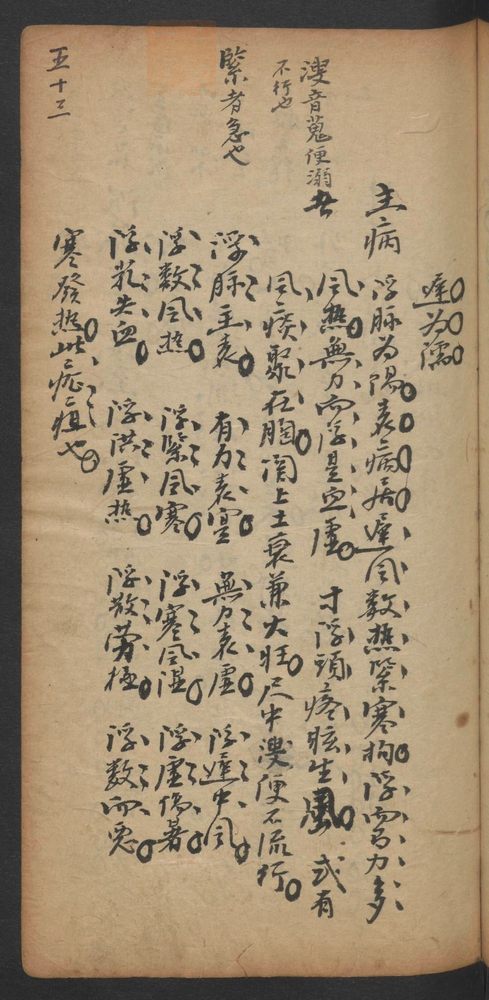 遲為濡
主病 浮脉為陽表病居遲風數熱緊寒拘浮而有力多
風熱無力而浮是血虛 寸浮頭疼眩生風 或有
風痰聚在胸関上土衰兼火旺尺中溲便不流行
浮脉主表 有力表實 無力表虛 浮遲中風
浮數風熱 浮緊風寒 浮寒風湿 浮虛傷暑
浮芤失血 浮洪虛热 浮散劳極 浮數而
寒發热此症疽也
溲音蒐便溺
不行也
緊者急也
五十三